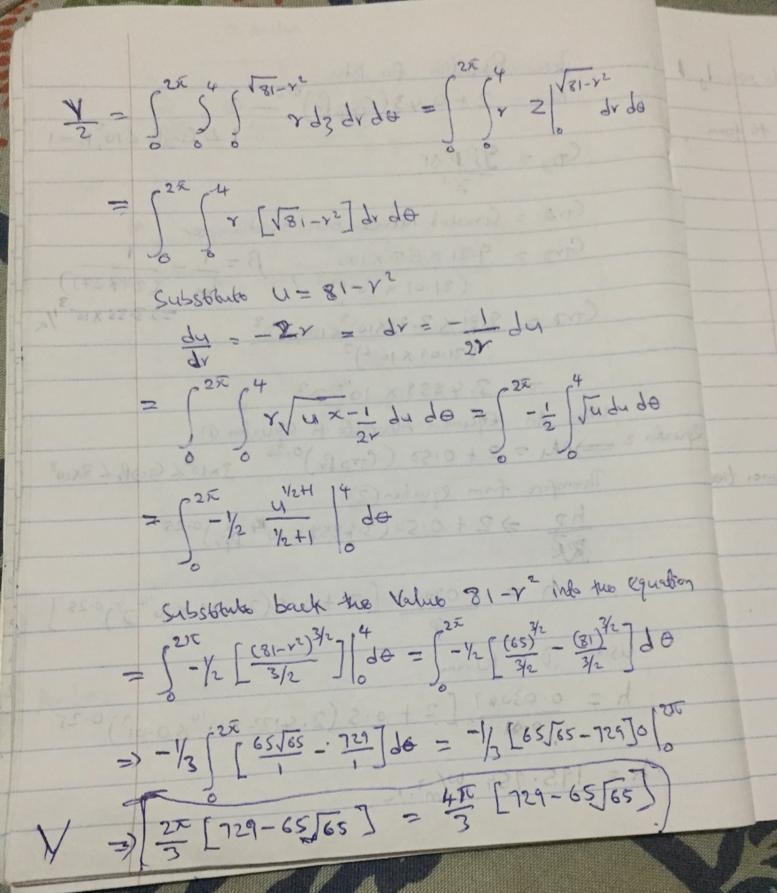 V/2 = ∫₀^2π ∫₀^4 ∫₀^√81-r² r dz dr dθ = ∫₀^2π ∫₀^4 r z|₀^√81-r² dr dθ
= ∫₀^2π ∫₀^4 r [√81-r²] dr dθ
Substitute u = 81-r²
du/dr = -2r = dr = -1/2r du
= ∫₀^2π ∫₀^4 r√u x -1/2r du dθ = ∫₀^2π -1/2 ∫₀^4 √u du dθ
= ∫₀^2π -1/2 u^(1/2+1)/(1/2+1) |₀^4 dθ
Substitute back the value 81-r² into the equation
= ∫₀^2π -1/2 [(81-r²)^3/2 / 3/2]|₀^4 dθ = ∫₀^2π -1/2 [(65)^3/2 / 3/2 - (81)^3/2 / 3/2] dθ
⇒ -1/3 ∫₀^2π [65√65/1 - 729/1] dθ = -1/3 [65√65-729] θ|₀^2π
V ⇒ [2π/3 [729-65√65] = 4π/3 [729-65√65]